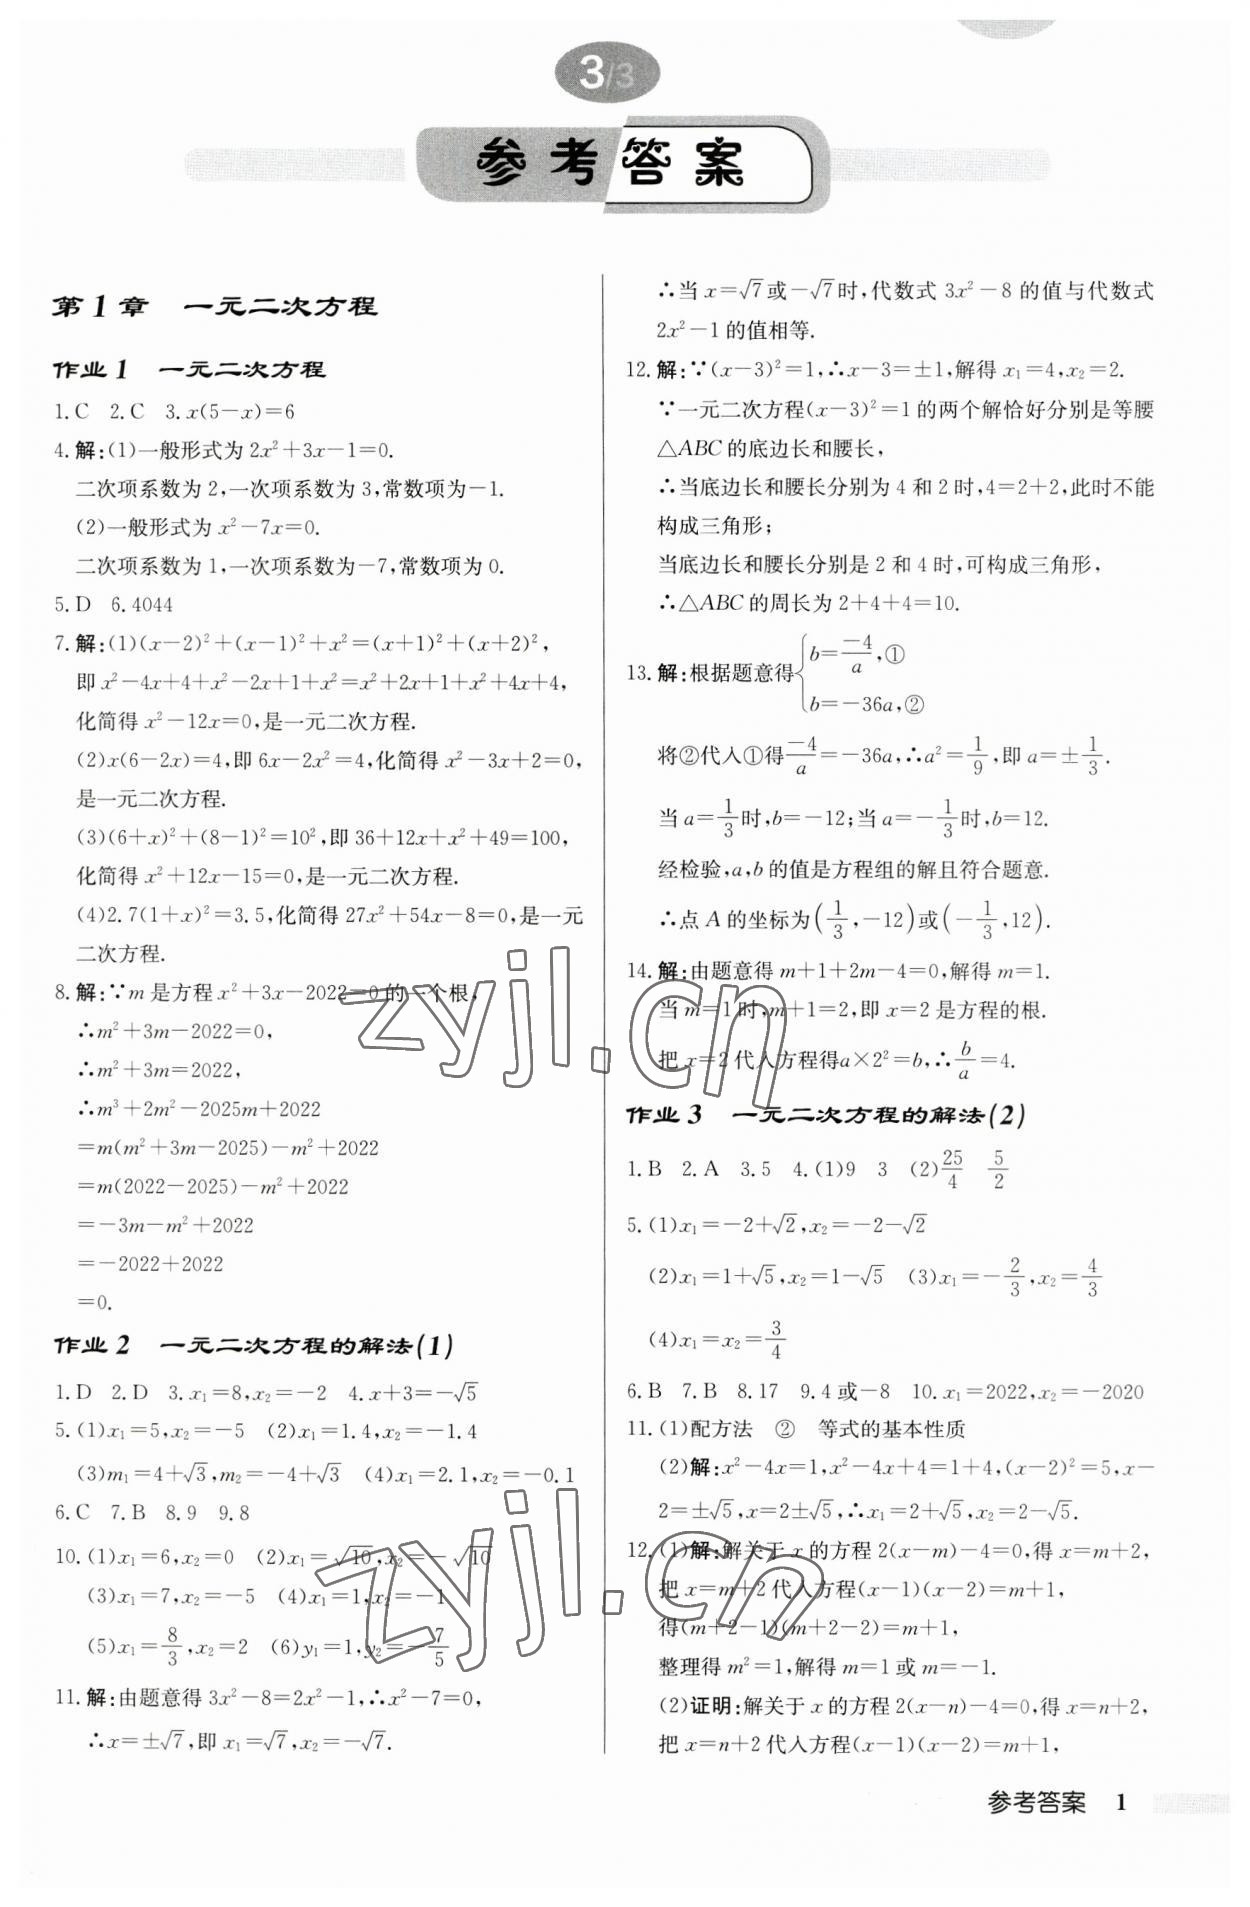 3/3
参考答案
第1章 一元二次方程
作业1 一元二次方程
1.C 2.C 3.x(5-x)=6
4.解:(1)一般形式为2x²+3x-1=0.
二次项系数为2,一次项系数为3,常数项为-1.
(2)一般形式为x²-7x=0.
二次项系数为1,一次项系数为-7,常数项为0.
5.D 6.4044
7.解:(1)(x-2)²+(x-1)²+x²=(x+1)²+(x+2)²,
即x²-4x+4+x²-2x+1+x²=x²+2x+1+x²+4x+4,
化简得x²-12x=0,是一元二次方程.
(2)x(6-2x)=4,即6x-2x²=4,化简得x²-3x+2=0,
是一元二次方程.
(3)(6+x)²+(8-1)²=10²,即36+12x+x²+49=100,
化简得x²+12x-15=0,是一元二次方程.
(4)2.7(1+x)²=3.5,化简得27x²+54x-8=0,是一元
二次方程.
8.解:∵m是方程x²+3x-2022=0的一个根,
∴m²+3m-2022=0,
∴m²+3m=2022,
∴m³+2m²-2025m+2022
=m(m²+3m-2025)-m²+2022
=m(2022-2025)-m²+2022
=-3m-m²+2022
=-2022+2022
=0.
作业2 一元二次方程的解法(1)
1.D 2.D 3.x₁=8,x₂=-2 4.x+3=-√5
5.(1)x₁=5,x₂=-5 (2)x₁=1.4,x₂=-1.4
(3)m₁=4+√3,m₂=-4+√3 (4)x₁=2.1,x₂=-0.1
6.C 7.B 8.9 9.8
10.(1)x₁=6,x₂=0 (2)x₁=√10,x₂=-√10
(3)x₁=7,x₂=-5 (4)x₁=1,x₂=-1
(5)x₁=8/3,x₂=2 (6)y₁=1,y₂=-7/5
11.解:由题意得3x²-8=2x²-1,∴x²-7=0,
∴x=±√7,即x₁=√7,x₂=-√7.
∴当x=√7或-√7时,代数式3x²-8的值与代数式
2x²-1的值相等.
12.解:∵(x-3)²=1,∴x-3=±1,解得x₁=4,x₂=2.
∵一元二次方程(x-3)²=1的两个解恰好分别是等腰
△ABC的底边长和腰长,
∴当底边长和腰长分别为4和2时,4=2+2,此时不能
构成三角形;
当底边长和腰长分别是2和4时,可构成三角形,
∴△ABC的周长为2+4+4=10.
13.解:根据题意得{b=-4/a,①
b=-36a,②
将②代入①得-4/a=-36a,∴a²=1/9,即a=±1/3.
当a=1/3时,b=-12;当a=-1/3时,b=12.
经检验,a,b的值是方程组的解且符合题意.
∴点A的坐标为(1/3,-12)或(-1/3,12).
14.解:由题意得m+1+2m-4=0,解得m=1.
当m=1时,m+1=2,即x=2是方程的根.
把x=2代入方程得a×2²=b,∴b/a=4.
作业3 一元二次方程的解法(2)
1.B 2.A 3.5 4.(1)9 3 (2)25/4 5/2
5.(1)x₁=-2+√2,x₂=-2-√2
(2)x₁=1+√5,x₂=1-√5 (3)x₁=-2/3,x₂=4/3
(4)x₁=x₂=3/4
6.B 7.B 8.17 9.4或-8 10.x₁=2022,x₂=-2020
11.(1)配方法 ② 等式的基本性质
(2)解:x²-4x=1,x²-4x+4=1+4,(x-2)²=5,x-
2=±√5,x=2±√5,∴x₁=2+√5,x₂=2-√5.
12.(1)解:解关于x的方程2(x-m)-4=0,得x=m+2,
把x=m+2代入方程(x-1)(x-2)=m+1,
得(m+2-1)(m+2-2)=m+1,
整理得m²=1,解得m=1或m=-1.
(2)证明:解关于x的方程2(x-n)-4=0,得x=n+2,
把x=n+2代入方程(x-1)(x-2)=m+1,
参考答案 1
zyjl.cn
zyjl.cn